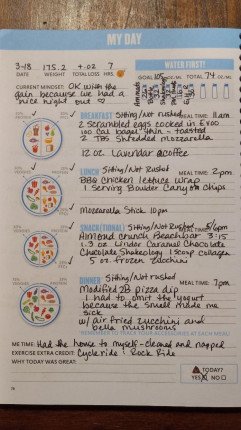 MY DAY
3-18 175.2 +.02 7
DATE WEIGHT TOTAL LOSS HRS.
WATER FIRST!
GOAL 105 OZ/ML TOTAL 74 OZ/ML
CURRENT MINDSET: OK with the
gain because we had a
nice night out ♡
BREAKFAST Sitting/Not rushed MEAL TIME: 11am
2 Scrambled eggs cooked in Evoo
100 Cal bagel thin - toasted
2 TBS Shredded mozzarella
12 oz. Lavendar acoffee
LUNCH Sitting/Not Rushed MEAL TIME: 2pm
BBQ chicken lettuce wrap
1 Serving Boulder Canyon Chips
Mozzarella Stick 10pm
SNACK (OPTIONAL) Sitting/Not Rushed
Almond Crunch Beachbar 3:15
1.3 oz Lindor Caramel Chocolate
Chocolate Shakeology 1 scoop collagen
5 oz. frozen zucchini
DINNER Sitting/Not rushed MEAL TIME: 7pm
Modified 2B pizza dip
I had to omit the yogurt
because the smell made me
sick
w/ air fried zucchini and
bella mushrooms
REMEMBER TO TRACK YOUR ACCESSORIES AT EACH MEAL!
ME TIME: Had the house to myself - cleaned and napped
EXERCISE EXTRA CREDIT: Cycle ride: Rock Ride
WHY TODAY WAS GREAT:
TODAY?
YES NO